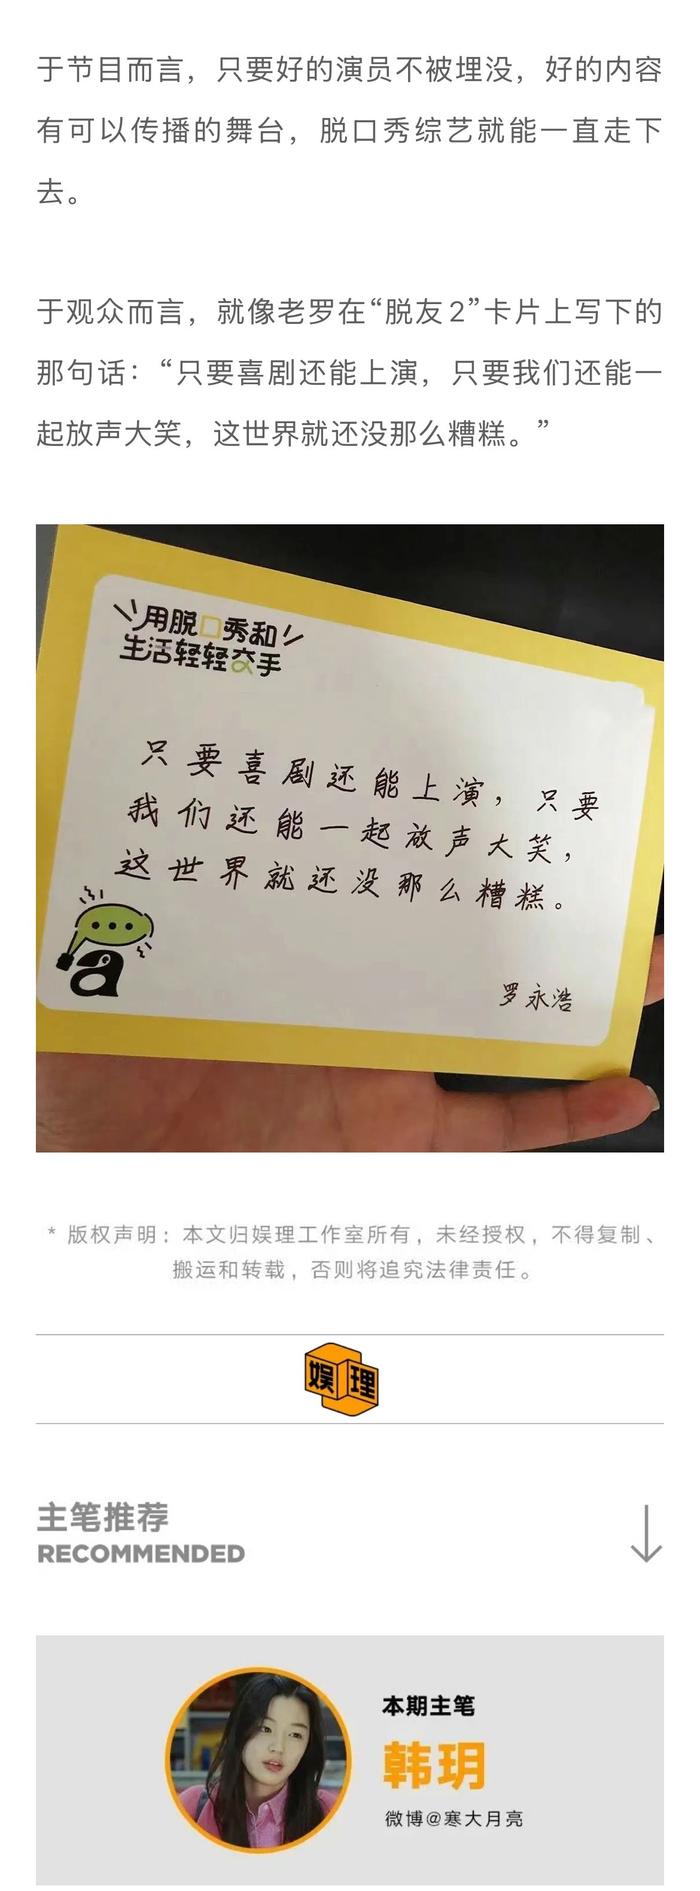 于节目而言，只要好的演员不被埋没，好的内容
有可以传播的舞台，脱口秀综艺就能一直走下
去。
于观众而言，就像老罗在“脱友2”卡片上写下的
那句话：“只要喜剧还能上演，只要我们还能一
起放声大笑，这世界就还没那么糟糕。”
用脱口秀和
生活轻轻交手
只要喜剧还能上演，只要
我们还能一起放声大笑，
这世界就还没那么糟糕。
a
罗永浩
* 版权声明：本文归娱理工作室所有，未经授权，不得复制、
搬运和转载，否则将追究法律责任。
娱理
主笔推荐
RECOMMENDED
本期主笔
韩玥
微博@寒大月亮